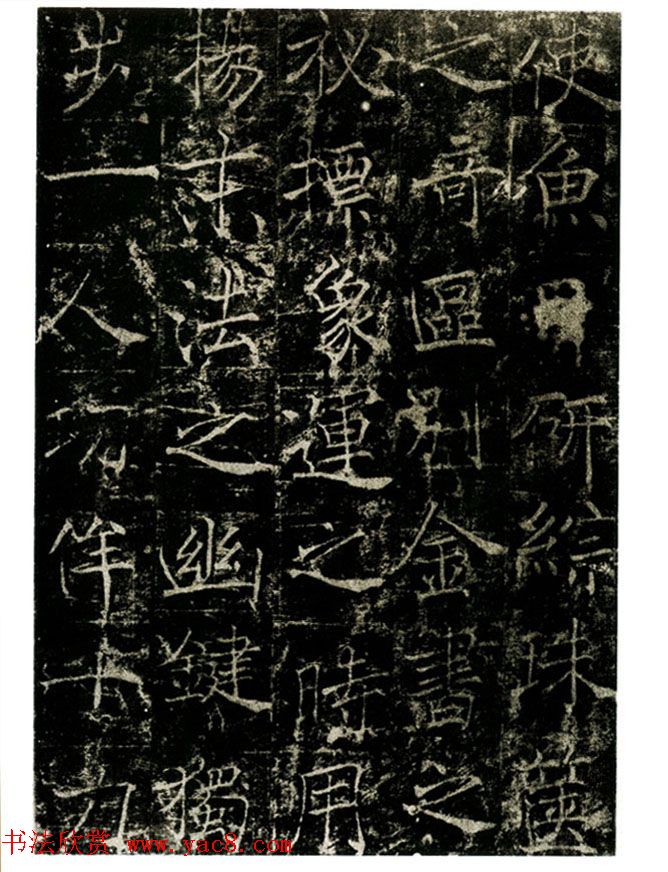 使魚研綜珠篋
之奇區別金書之
秘摽象運之時用
揚末法之幽鍵獨
步一人况伴十力
书法欣赏 www.yac8.com